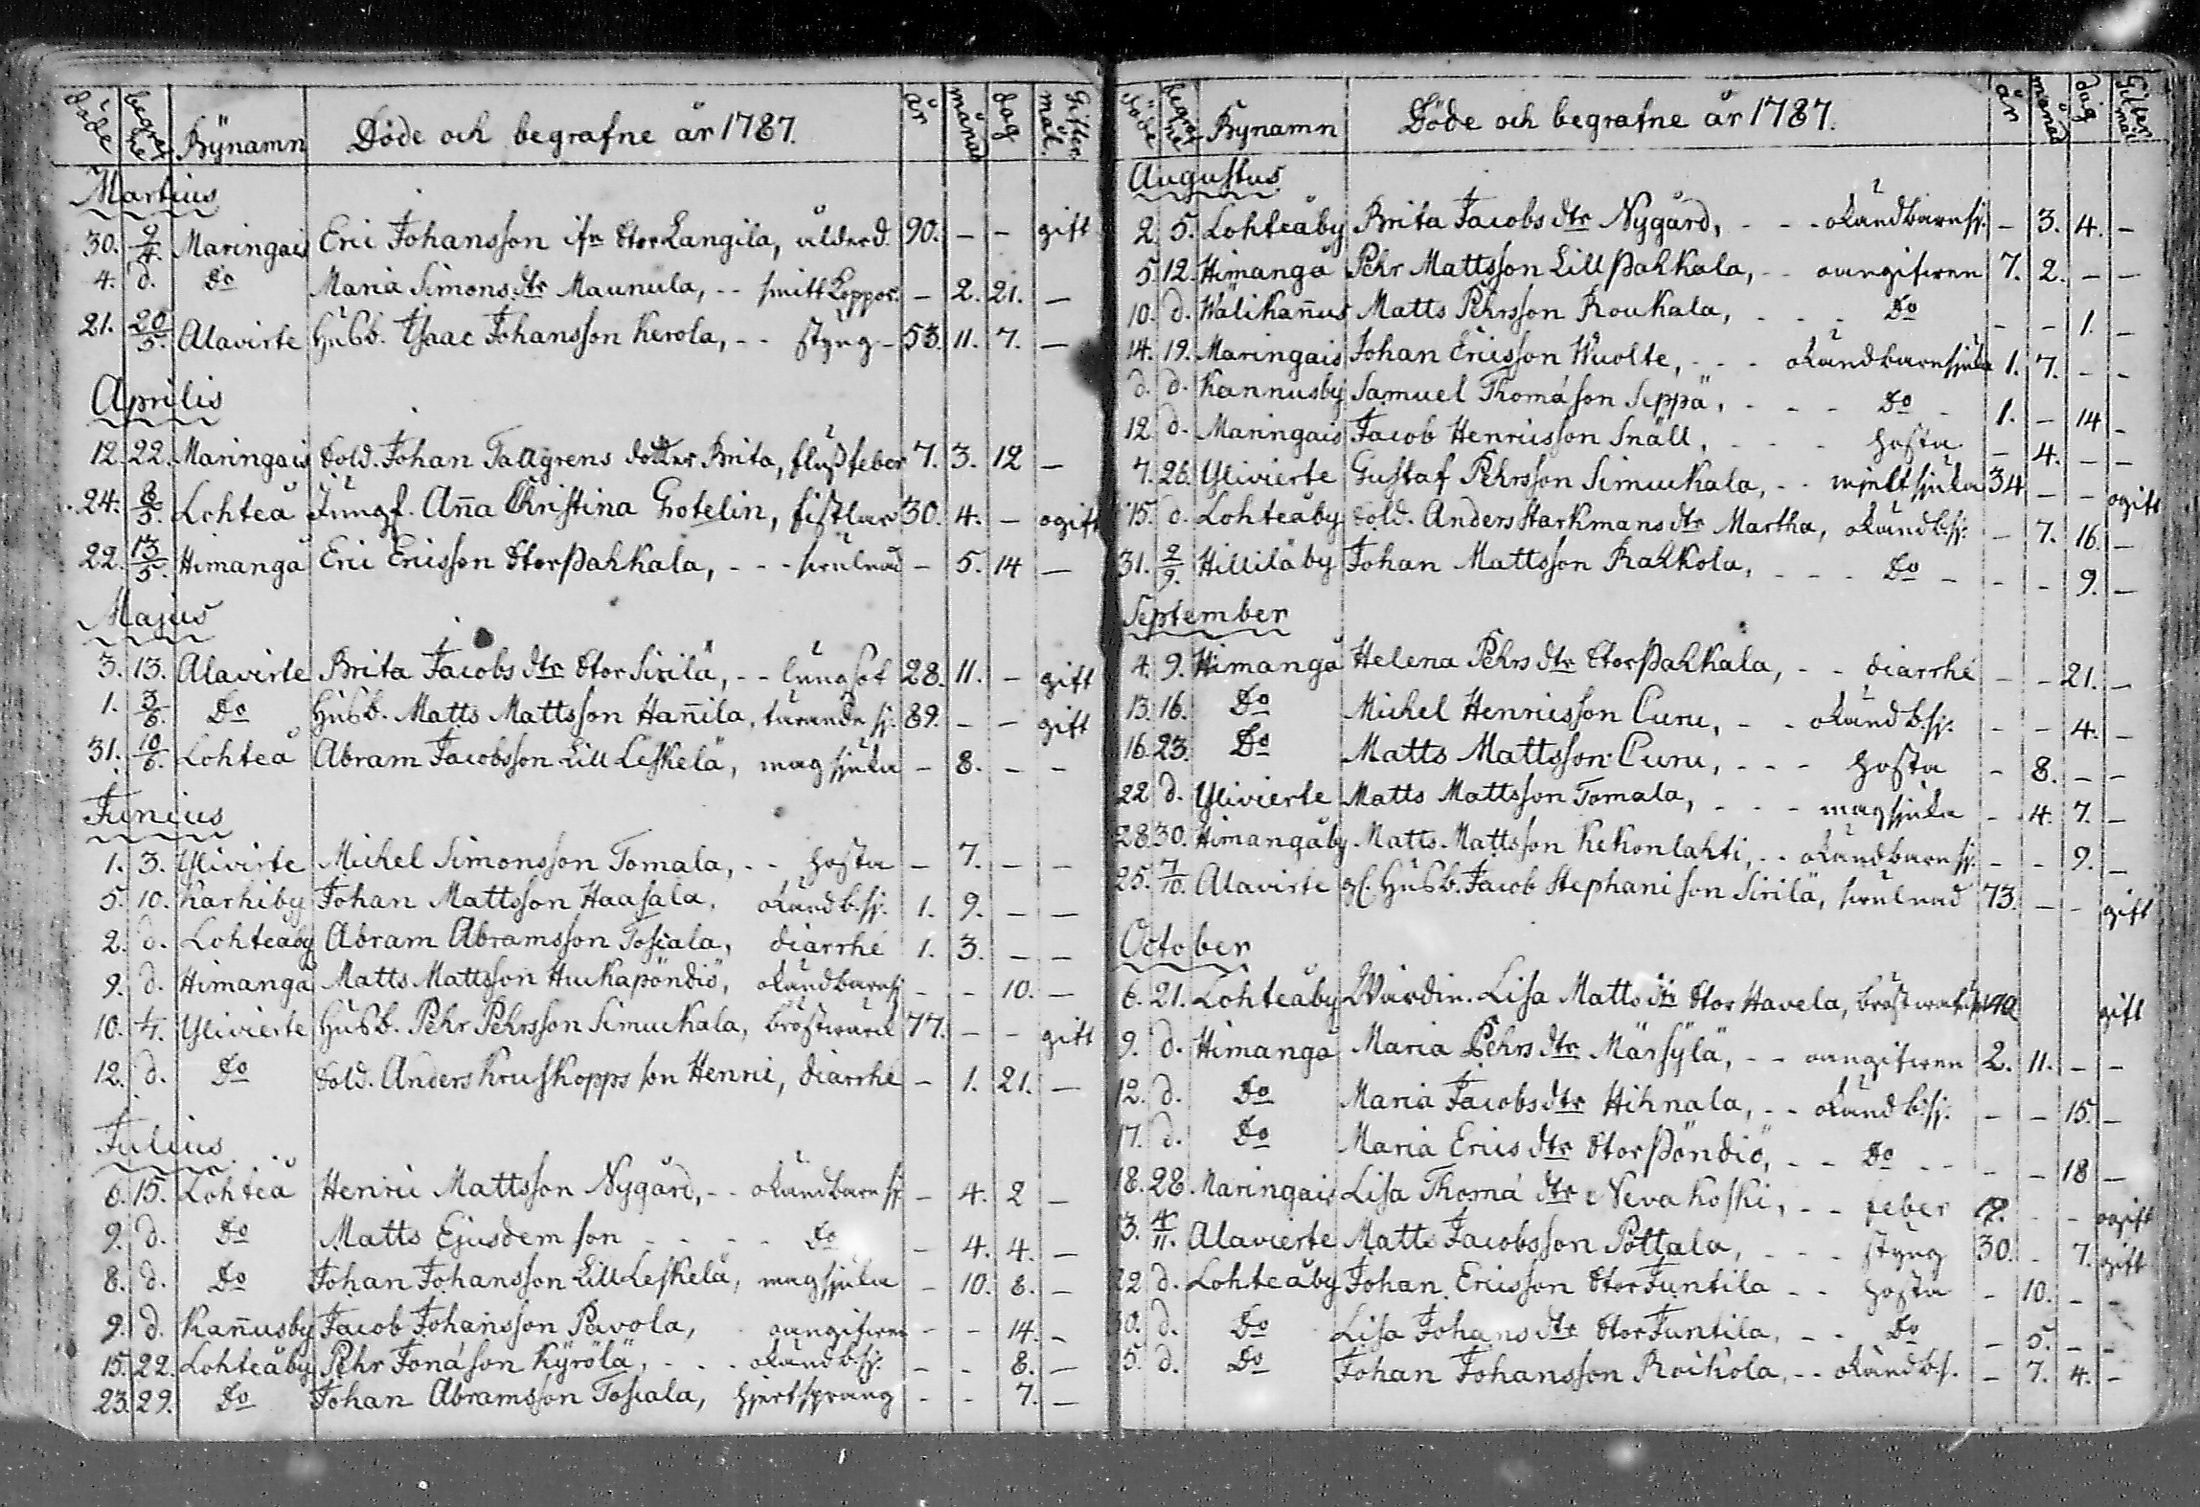 döde begrafne Bÿnamn Döde och begrafne år 1787. år månad dag Gifter mål.
Martius
30. 9/4. Maringais Eric Johansson ifr Stor Langila, ålderd. 90. - - gift
4. d. Do Maria Simons dtr Maunula, -- smittkoppor. - 2. 21. -
21. 20/5. Alavirte Husb. Ysaac Johansson Kerola, -- styng - 53. 11. 7. -
Aprilis
12. 22. Maringais Sold. Johan Tallgrens dotter Brita, flussfeber 7. 3. 12 -
24. 6/5. Lohteå Jungf. Aña Christina Grotelin, fistlar 30. 4. - ogift
22. 13/5. Himangå Eric Ericsson StorPahkala, --- svulnad - 5. 14 -
Majus
3. 13. Alavirte Brita Jacobs dtr Stor Sirilä, -- lungsot 28. 11. - gift
1. 3/6. Do Husb. Matts Mattsson Hañila, tärande sj. 89. - - gift
31. 10/6. Lohteå Abram Jacobsson Lill Leskelä, magsjuka - 8. - -
Junius
1. 3. Ylivirte Michel Simonsson Tomala, -- hosta - 7. - -
5. 10. Karhiby Johan Mattsson Haasala, okänd b.sj. 1. 9. - -
2. d. Lohteåby Abram Abramsson Tosiala, diarrhé 1. 3. - -
9. d. Himangå Matts Mattsson Huikapöndiö, okänd barnsj - - 10. -
10. 1/7. Ylivierte Husb. Pehr Pehrsson Simuckala, bröstvärk 77. - - gift
12. d. Do Sold. Anders Kruskopps son Henric, diarrhé - 1. 21. -
Julius
6. 15. Lohteå Henric Mattsson Nygård, -- okänd barnsj - 4. 2 -
9. d. Do Matts Ejusdem son ---- Do - 4. 4. -
8. d. Do Johan Johansson Lill Leskelä, magsjuka - 10. 8. -
9. d. Kañusby Jacob Johansson Pavola, - oangifven - - 14. -
15. 22. Lohteåby Pehr Jonæ son Kÿrölä, --- okänd b.sj. - - 8. -
23. 29. Do Johan Abramsson Tosiala, hjertsprång - - 7. -
döde begrafne Bynamn Döde och begrafne år 1787. år månad dag Gifter mål
Augustus
2. 5. Lohteåby Brita Jacobs dtr Nygård, --- okänd barnsj. - 3. 4. -
5. 12. Himangå Pehr Mattsson Lill Pahkala, -- oangifven 7. 2. - -
10. d. Wälikañus Matts Pehrsson Roukala, --- Do - - 1. -
14. 19. Maringais Johan Ericsson Wuolte, --- okänd barnsjuka 1. 7. - -
d. d. Kannusby Samuel Thomæ son Seppä, --- Do - 1. - 14 -
12 d. Maringais Jacob Henricsson Snäll, --- hosta - 4. - -
7. 26. Ylivierte Gustaf Pehrsson Simuckala, -- mjeltsjuka 34 - - ogift
15. d. Lohteåby Sold. Anders Starkmans dtr Martha, okänd b.sj. - 7. 16. -
31. 2/9. Hilliläby Johan Mattsson Rahkola, --- Do - - - 9. -
September
4. 9. Himangå Helena Pehrs dtr StorPahkala, -- diarrhé - - 21. -
13. 16. Do Michel Henricsson Curu, -- okänd b.sj. - - 4. -
16. 23. Do Matts Mattsson Curu, --- hosta - 8. - -
22 d. Ylivierte Matts Mattsson Tomala, --- magsjuka - 4. 7. -
28. 30. Himangåby Matts Mattsson Kekonlahti, -- okänd barnsj. - - 9. -
25. 7/10. Alavirte gl. Husb. Jacob Stephani son Sirilä, svulnad 73. - - gift
October
6. 21. Lohteåby Wärdin. Lisa Matts dtr Stor Havela, gift
9. d. Himangå Maria Pehrs dtr Märsÿlä, -- oangifven 2. 11. - -
12. d. Do Maria Jacobs dtr Hihnala, -- okänd b.sj. - - 15. -
17. d. Do Maria Erics dtr StorPöndiö, -- Do -- - - 18 -
18. 28. Maringais Lisa Thomæ dtr Nevakoski, -- feber - - ogift
3. 4/11. Alavierte Matts Jacobsson Pöttala, --- styng 30. - 7. gift
22 d. Lohteåby Johan Ericsson Stor Juntila -- hosta - 10. - -
30. d. Do Lisa Johans dtr Stor Juntila, -- Do - 5. - -
5. d. Do Johan Johansson Roikola, -- okänd b.sj. - 7. 4. -